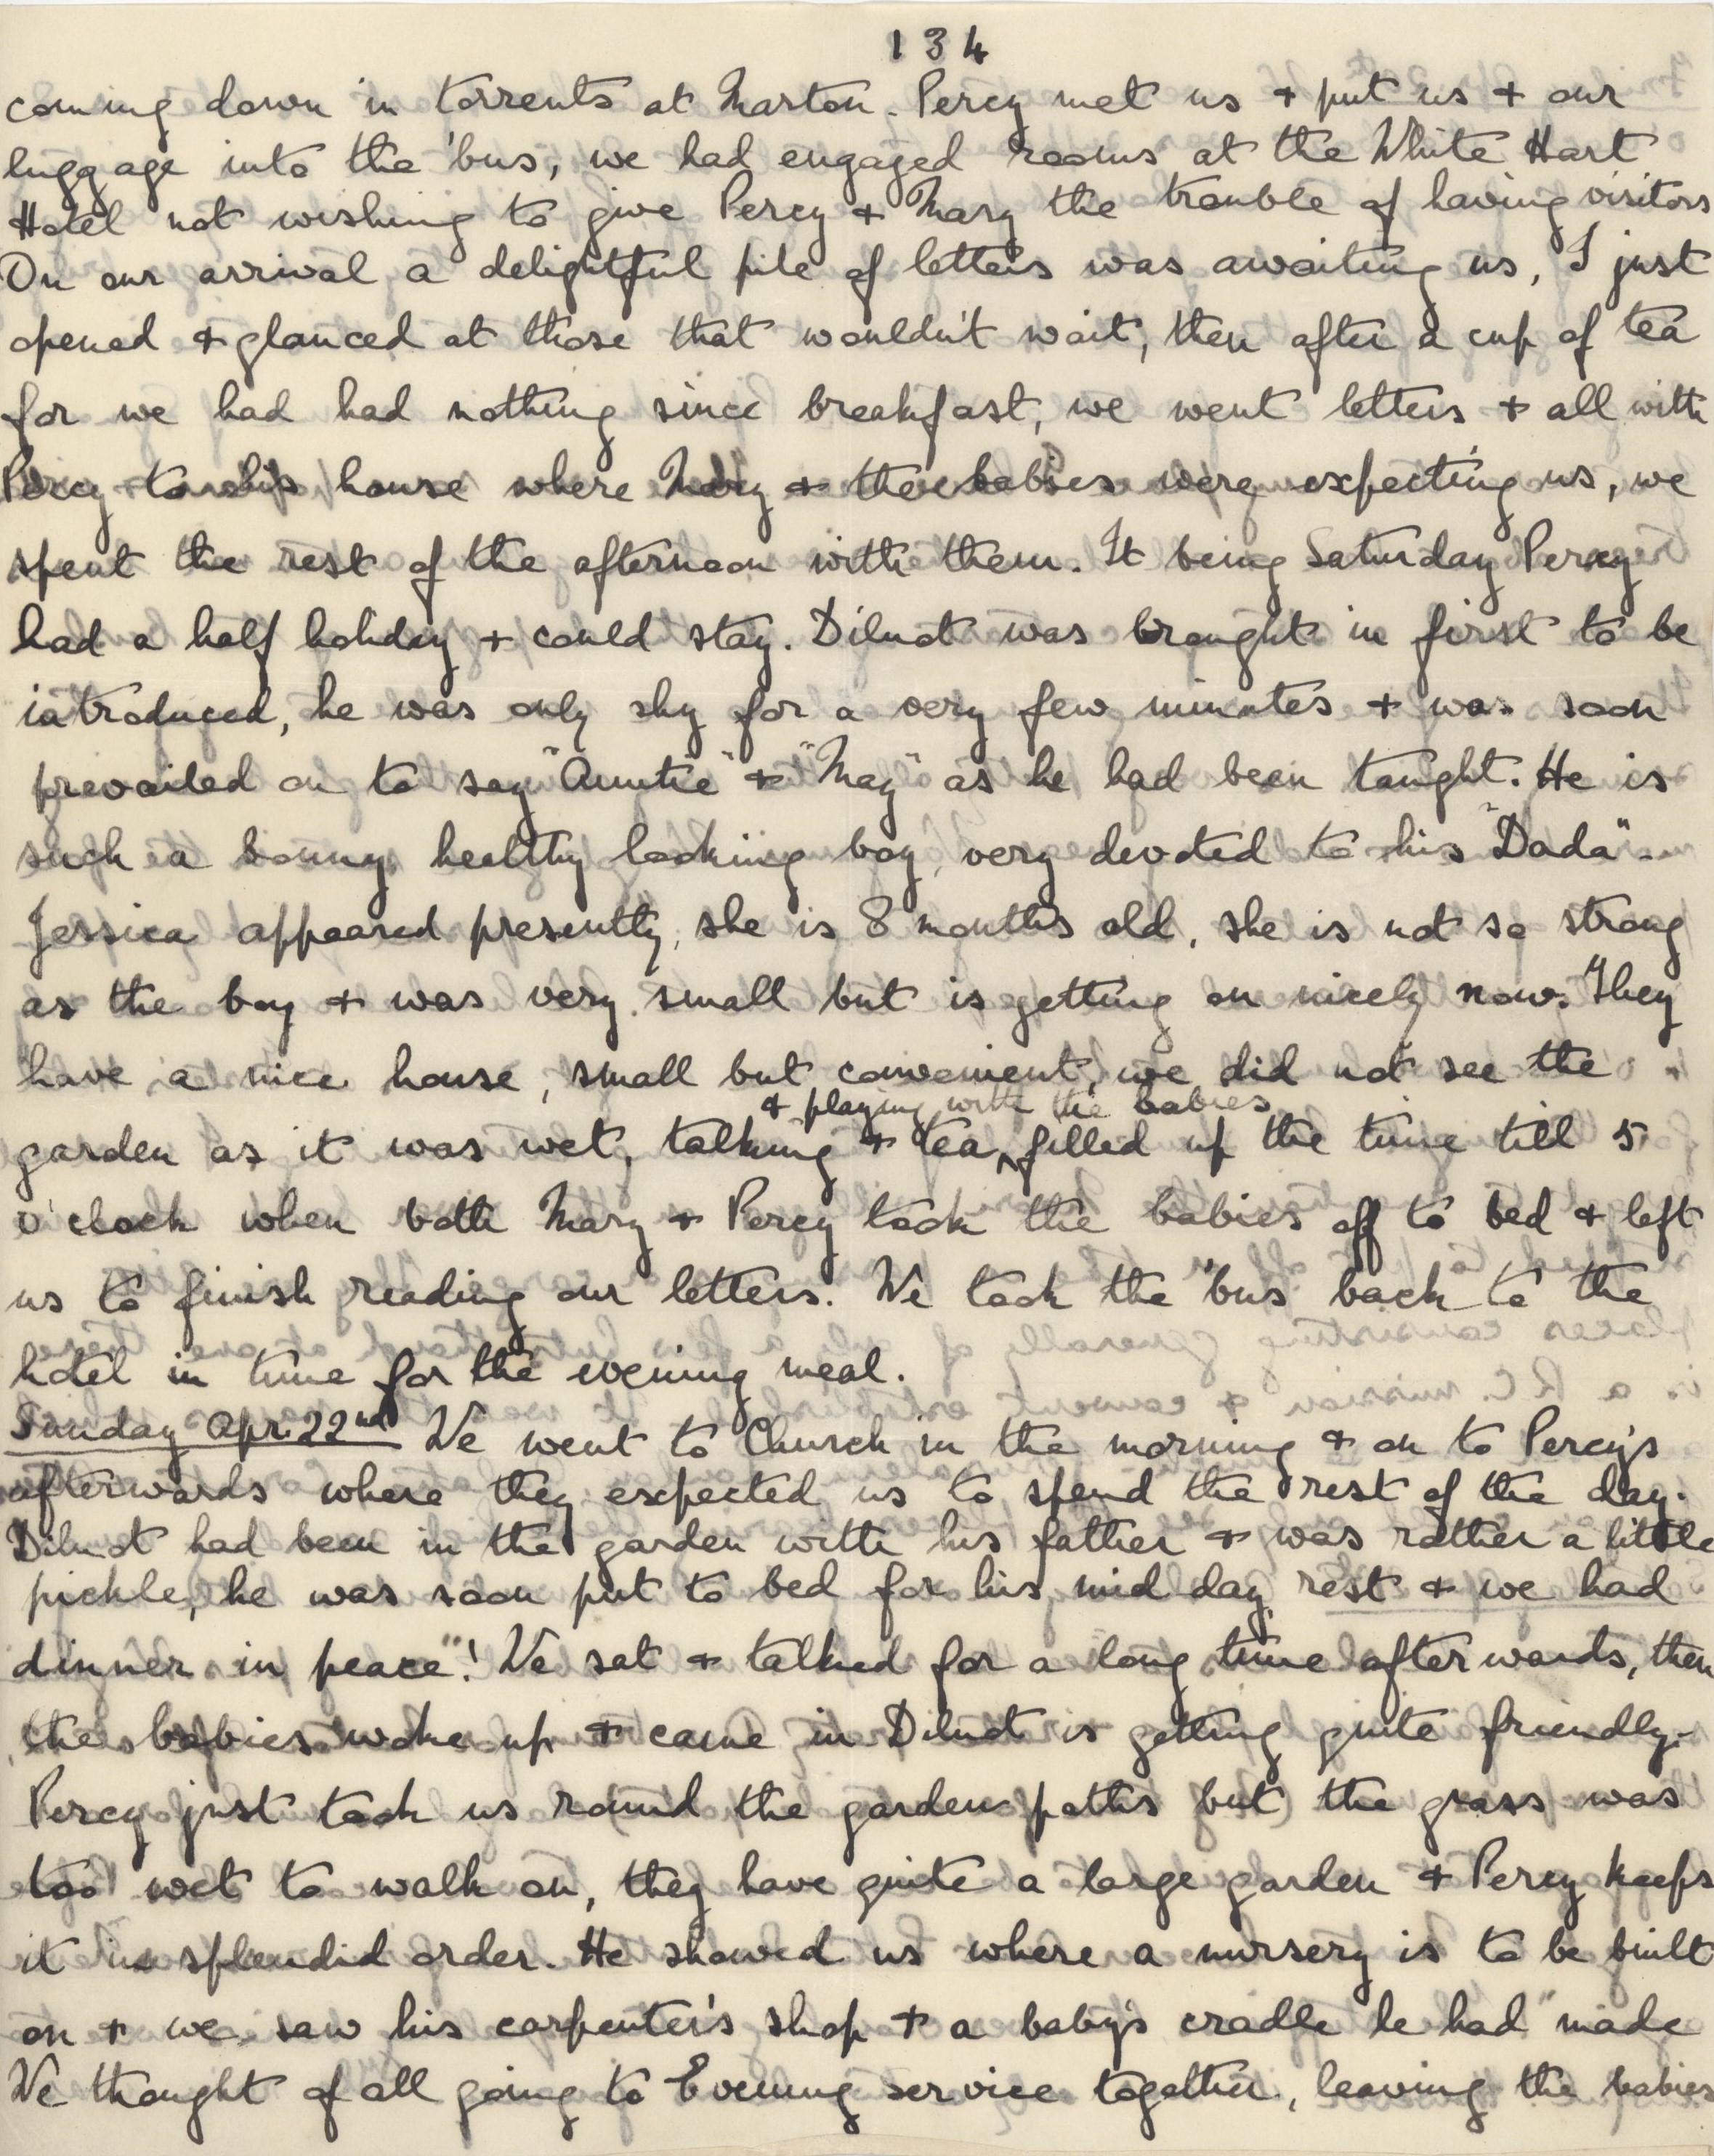 134
coming down in torrents at Marton. Percy met us + put us + our
luggage into the 'bus, we had engaged rooms at the White Hart
Hotel not wishing to give Percy + Mary the trouble of having visitors
On our arrival a delightful pile of letters was awaiting us, I just
opened + glanced at those that wouldn't wait, then after a cup of tea
for we had had nothing since breakfast, we went letters + all with
Percy to his house where Mary + the babies were expecting us, we
spent the rest of the afternoon with them. It being Saturday Percy
had a half holiday + could stay. Dilnot was brought in first to be
introduced, he was only shy for a very few minutes + was soon
prevailed on to say "Auntie" + "May" as he had been taught. He is
such a bonny healthy looking boy, very devoted to his "Dada".
Jessica appeared presently, she is 8 months old, she is not so strong
as the boy + was very small but is getting on nicely now. They
have a nice house, small but convenient, we did not see the
& playing with the babies
garden as it was wet, talking + tea ^ filled up the time till 5
o'clock when both Mary + Percy took the babies off to bed + left
us to finish reading our letters. We took the 'bus back to the
hotel in time for the evening meal.
Sunday Apr. 22nd We went to Church in the morning + on to Percy's
afterwards where they expected us to spend the rest of the day.
Dilnot had been in the garden with his father + was rather a little
pickle, he was soon put to bed for his mid day rest + we had
dinner in peace"! We sat + talked for a long time afterwards, then
the babies woke up + came in Dilnot is getting quite friendly.
Percy just took us round the garden paths but the grass was
too wet to walk on, they have quite a large garden + Percy keeps
it in splendid order. He showed us where a nursery is to be built
on + we saw his carpenter's shop + a baby's cradle he had made
We thought of all going to Evening service together, leaving the babies